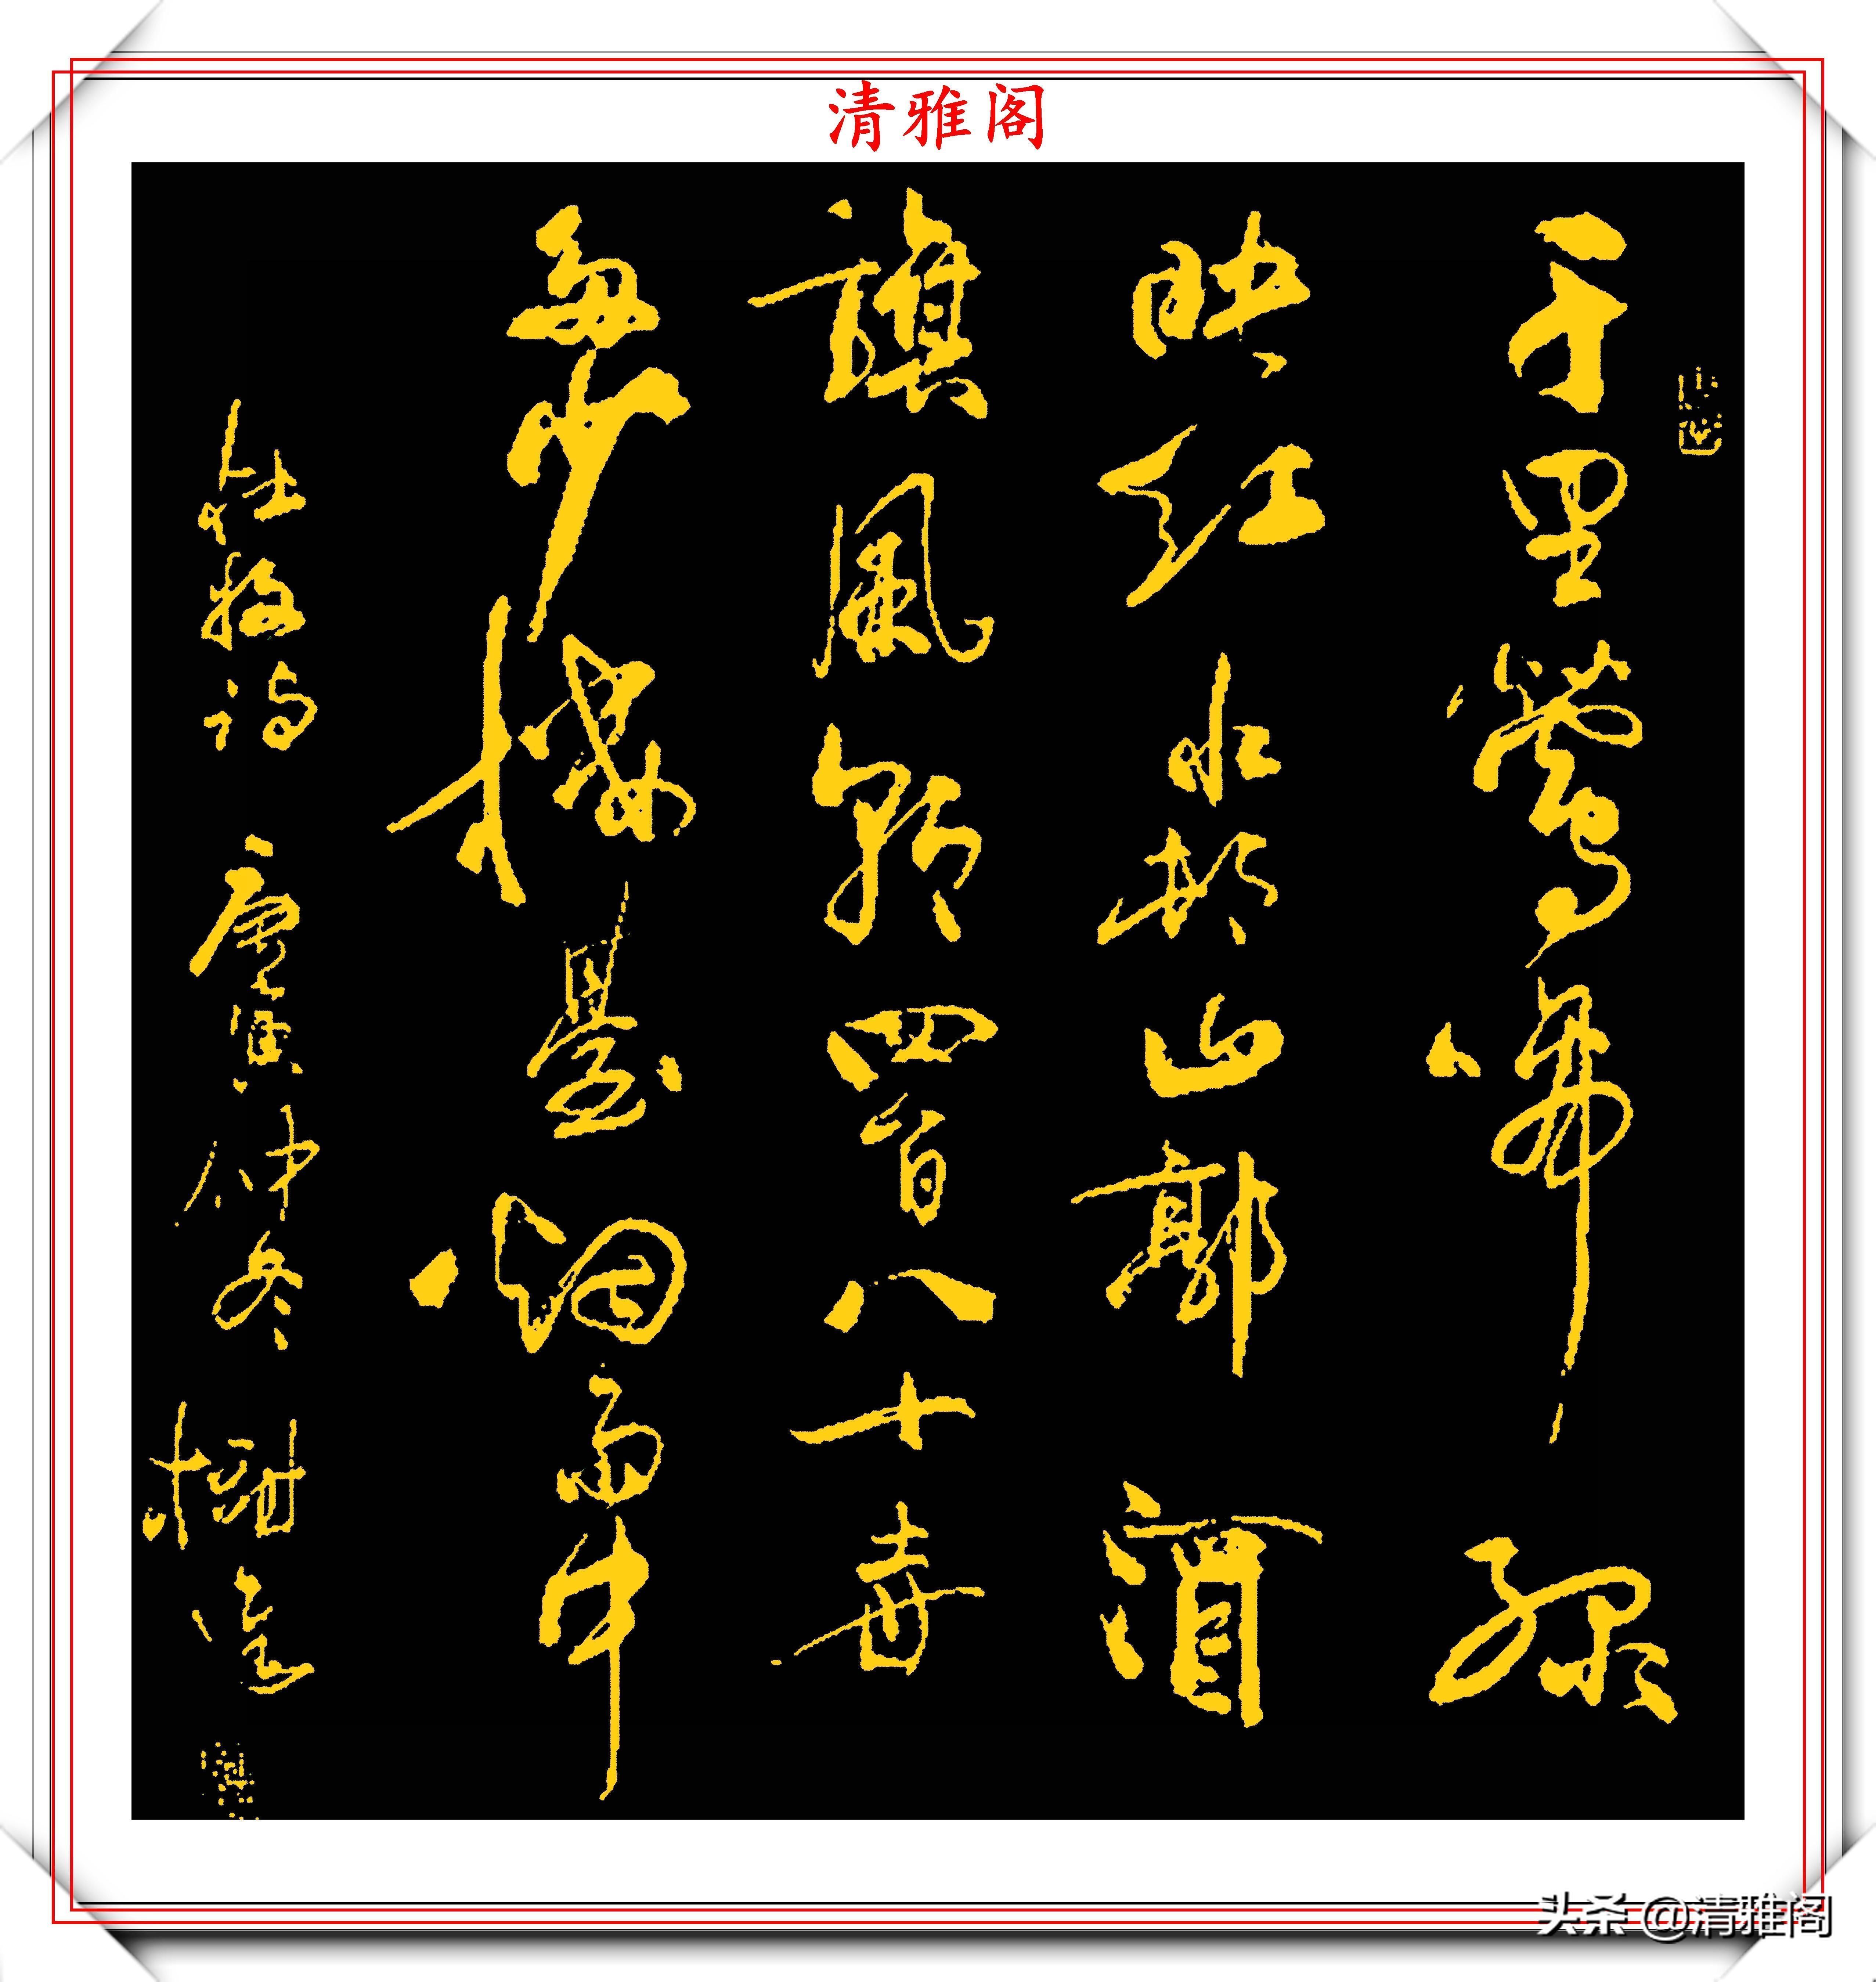 清雅阁
千里鶯啼綠
映紅水村山郭酒
旗風朝四百八十
少樓臺烟雨中
杜牧詩 庚寅仲冬
头条 @清雅阁